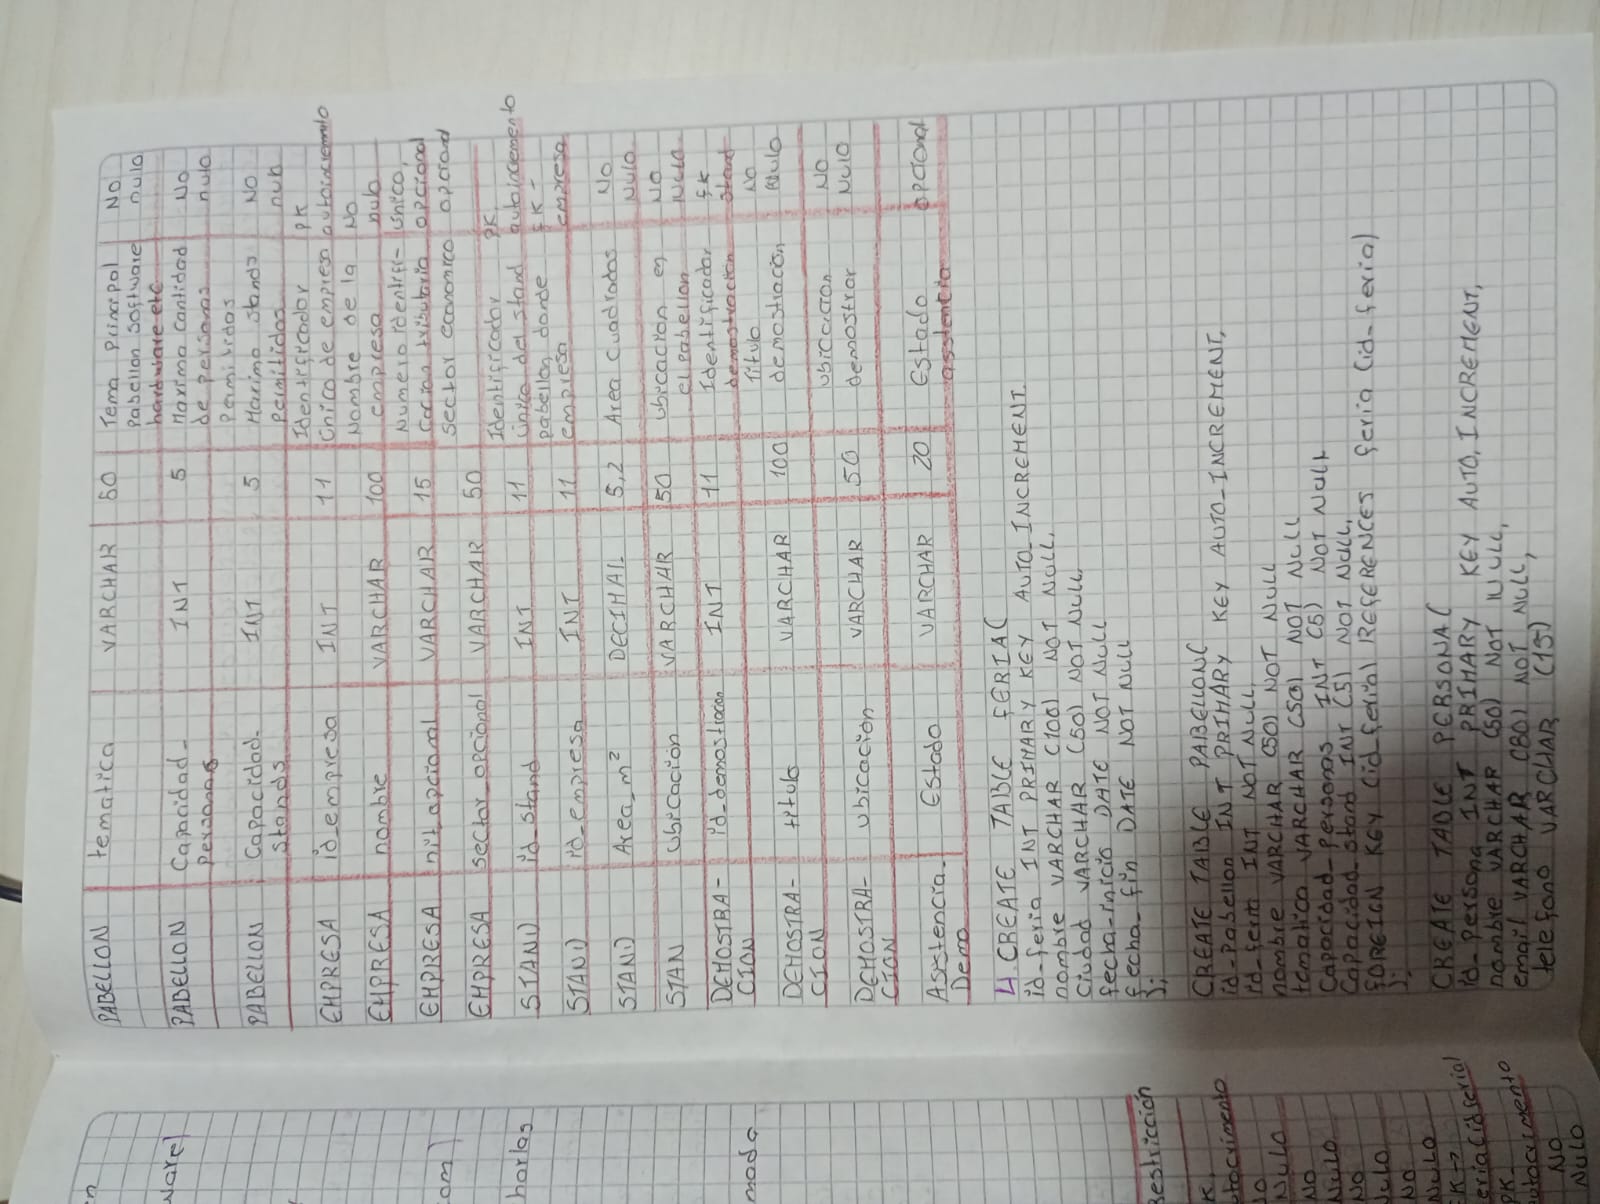 PABELLON tematica VARCHAR 50 Tema principal No
pabellon software nulo
hardware etc
PABELLON Capacidad_ INT 5 Maxima cantidad No
personas de personas nulo
Permitidas
PABELLON Capacidad_ INT 5 Maximo stands NO
stands Permitidos nulo
EMPRESA id_empresa INT 11 Identificador PK
Unico de empresa autoincremento
EMPRESA nombre VARCHAR 100 Nombre de la No
empresa nulo
EMPRESA nit_opcional VARCHAR 15 Numero identifi- Unico,
cacion tributaria opcional
EMPRESA sector_opcional VARCHAR 50 sector economico opcional
STAND id_stand INT 11 Identificador PK
unico del stand autoincremento
STAND id_empresa INT 11 pabellon donde FK-
empresa empresa
STAND Area_m² DECIMAL 5,2 Area cuadrados No
Nulo
STAN Ubicación VARCHAR 50 Ubicacion en No
el pabellon Nulo
DEMOSTRA- id_demostracion INT 11 Identificador FK
CION demostracion stand
DEMOSTRA- titulo VARCHAR 100 Titulo No
CION demostración Nulo
DEMOSTRA- ubicacion VARCHAR 50 ubicacion No
CION demostrar Nulo
Asistencia- Estado VARCHAR 20 Estado opcional
Demo asistencia
4. CREATE TABLE FERIA(
id_feria INT PRIMARY KEY AUTO_INCREMENT
nombre VARCHAR (100) NOT NULL,
ciudad VARCHAR (50) NOT NULL
fecha_inicio DATE NOT NULL
fecha_fin DATE NOT NULL
);
CREATE TABLE PABELLON(
id_pabellon INT PRIMARY KEY AUTO_INCREMENT,
id_feria INT NOT NULL,
nombre VARCHAR (50) NOT NULL
tematica VARCHAR (50) NOT NULL
Capacidad_personas INT (5) NOT NULL
Capacidad_stand INT (5) NOT NULL,
FOREIGN KEY (id_feria) REFERENCES feria (id_feria)
);
CREATE TABLE PERSONA(
id_persona INT PRIMARY KEY AUTO_INCREMENT,
nombre VARCHAR (50) NOT NULL,
email VARCHAR (80) NOT NULL,
telefono VARCHAR (15)
ware)
harlas
mada
Restricción
K.
utocrimento
Nulo
No
Nulo
No
ulo
No
Nulo
K->
eria(idferia)
PK
utocrimento
No
Nulo